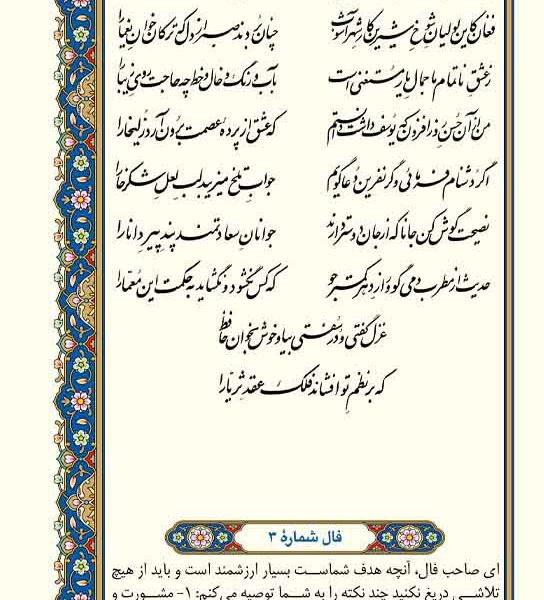 فغان کاین لولیان شوخ شیرین کار شهرآشوب چنان بردند صبر از دل که ترکان خوان یغما را
ز عشق ناتمام ما جمال یار مستغنی است به آب و رنگ و خال و خط چه حاجت روی زیبا را
من از آن حسن روزافزون که یوسف داشت دانستم که عشق از پرده عصمت برون آرد زلیخا را
اگر دشنام فرمائی و گر نفرین دعا گویم جواب تلخ می‌زیبد لب لعل شکرخا را
نصیحت گوش کن جانا که از جان دوست‌تر دارند جوانان سعادتمند پند پیر دانا را
حدیث از مطرب و می گو و راز دهر کمتر جو که کس نگشود و نگشاید به حکمت این معما را
غزل گفتی و در سفتی بیا و خوش بخوان حافظ
که بر نظم تو افشاند فلک عقد ثریا را
فال شمارهٔ ۳
ای صاحب فال، آنچه هدف شماست بسیار ارزشمند است و باید از هیچ
تلاشی دریغ نکنید چند نکته را به شما توصیه می‌کنم: ۱- مشورت و